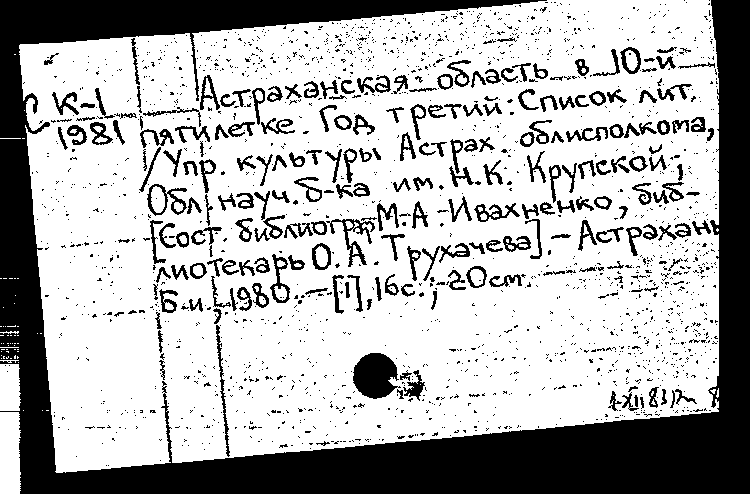 С К-1
1981
Астраханская область в 10-й
пятилетке. Год третий: Список лит.
/Упр. культуры Астрах. облисполкома,
Обл. науч. б-ка им. Н.К. Крупской;
[Сост. библиогр. М.А. Ивахненко, биб-
лиотекарь О.А. Трухачева]. – Астрахань
Б.и., 1980. – [1], 16 с.; 20 см.